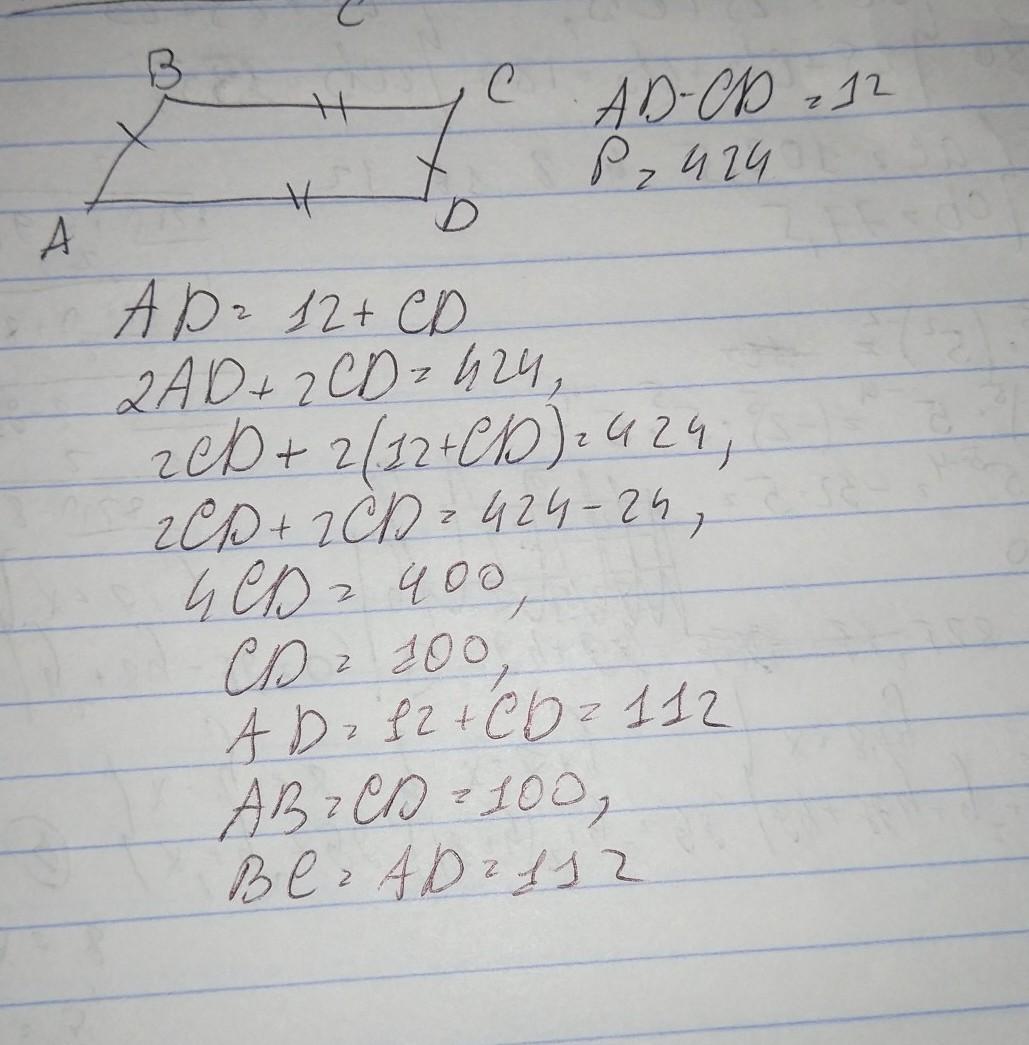 C
B
C
AD-CD = 12
P = 424
A
D
AD = 12 + CD
2AD + 2CD = 424,
2CD + 2(12+CD) = 424,
2CD + 2CD = 424 - 24,
4CD = 400,
CD = 100,
AD = 12 + CD = 112
AB = CD = 100,
BC = AD = 112